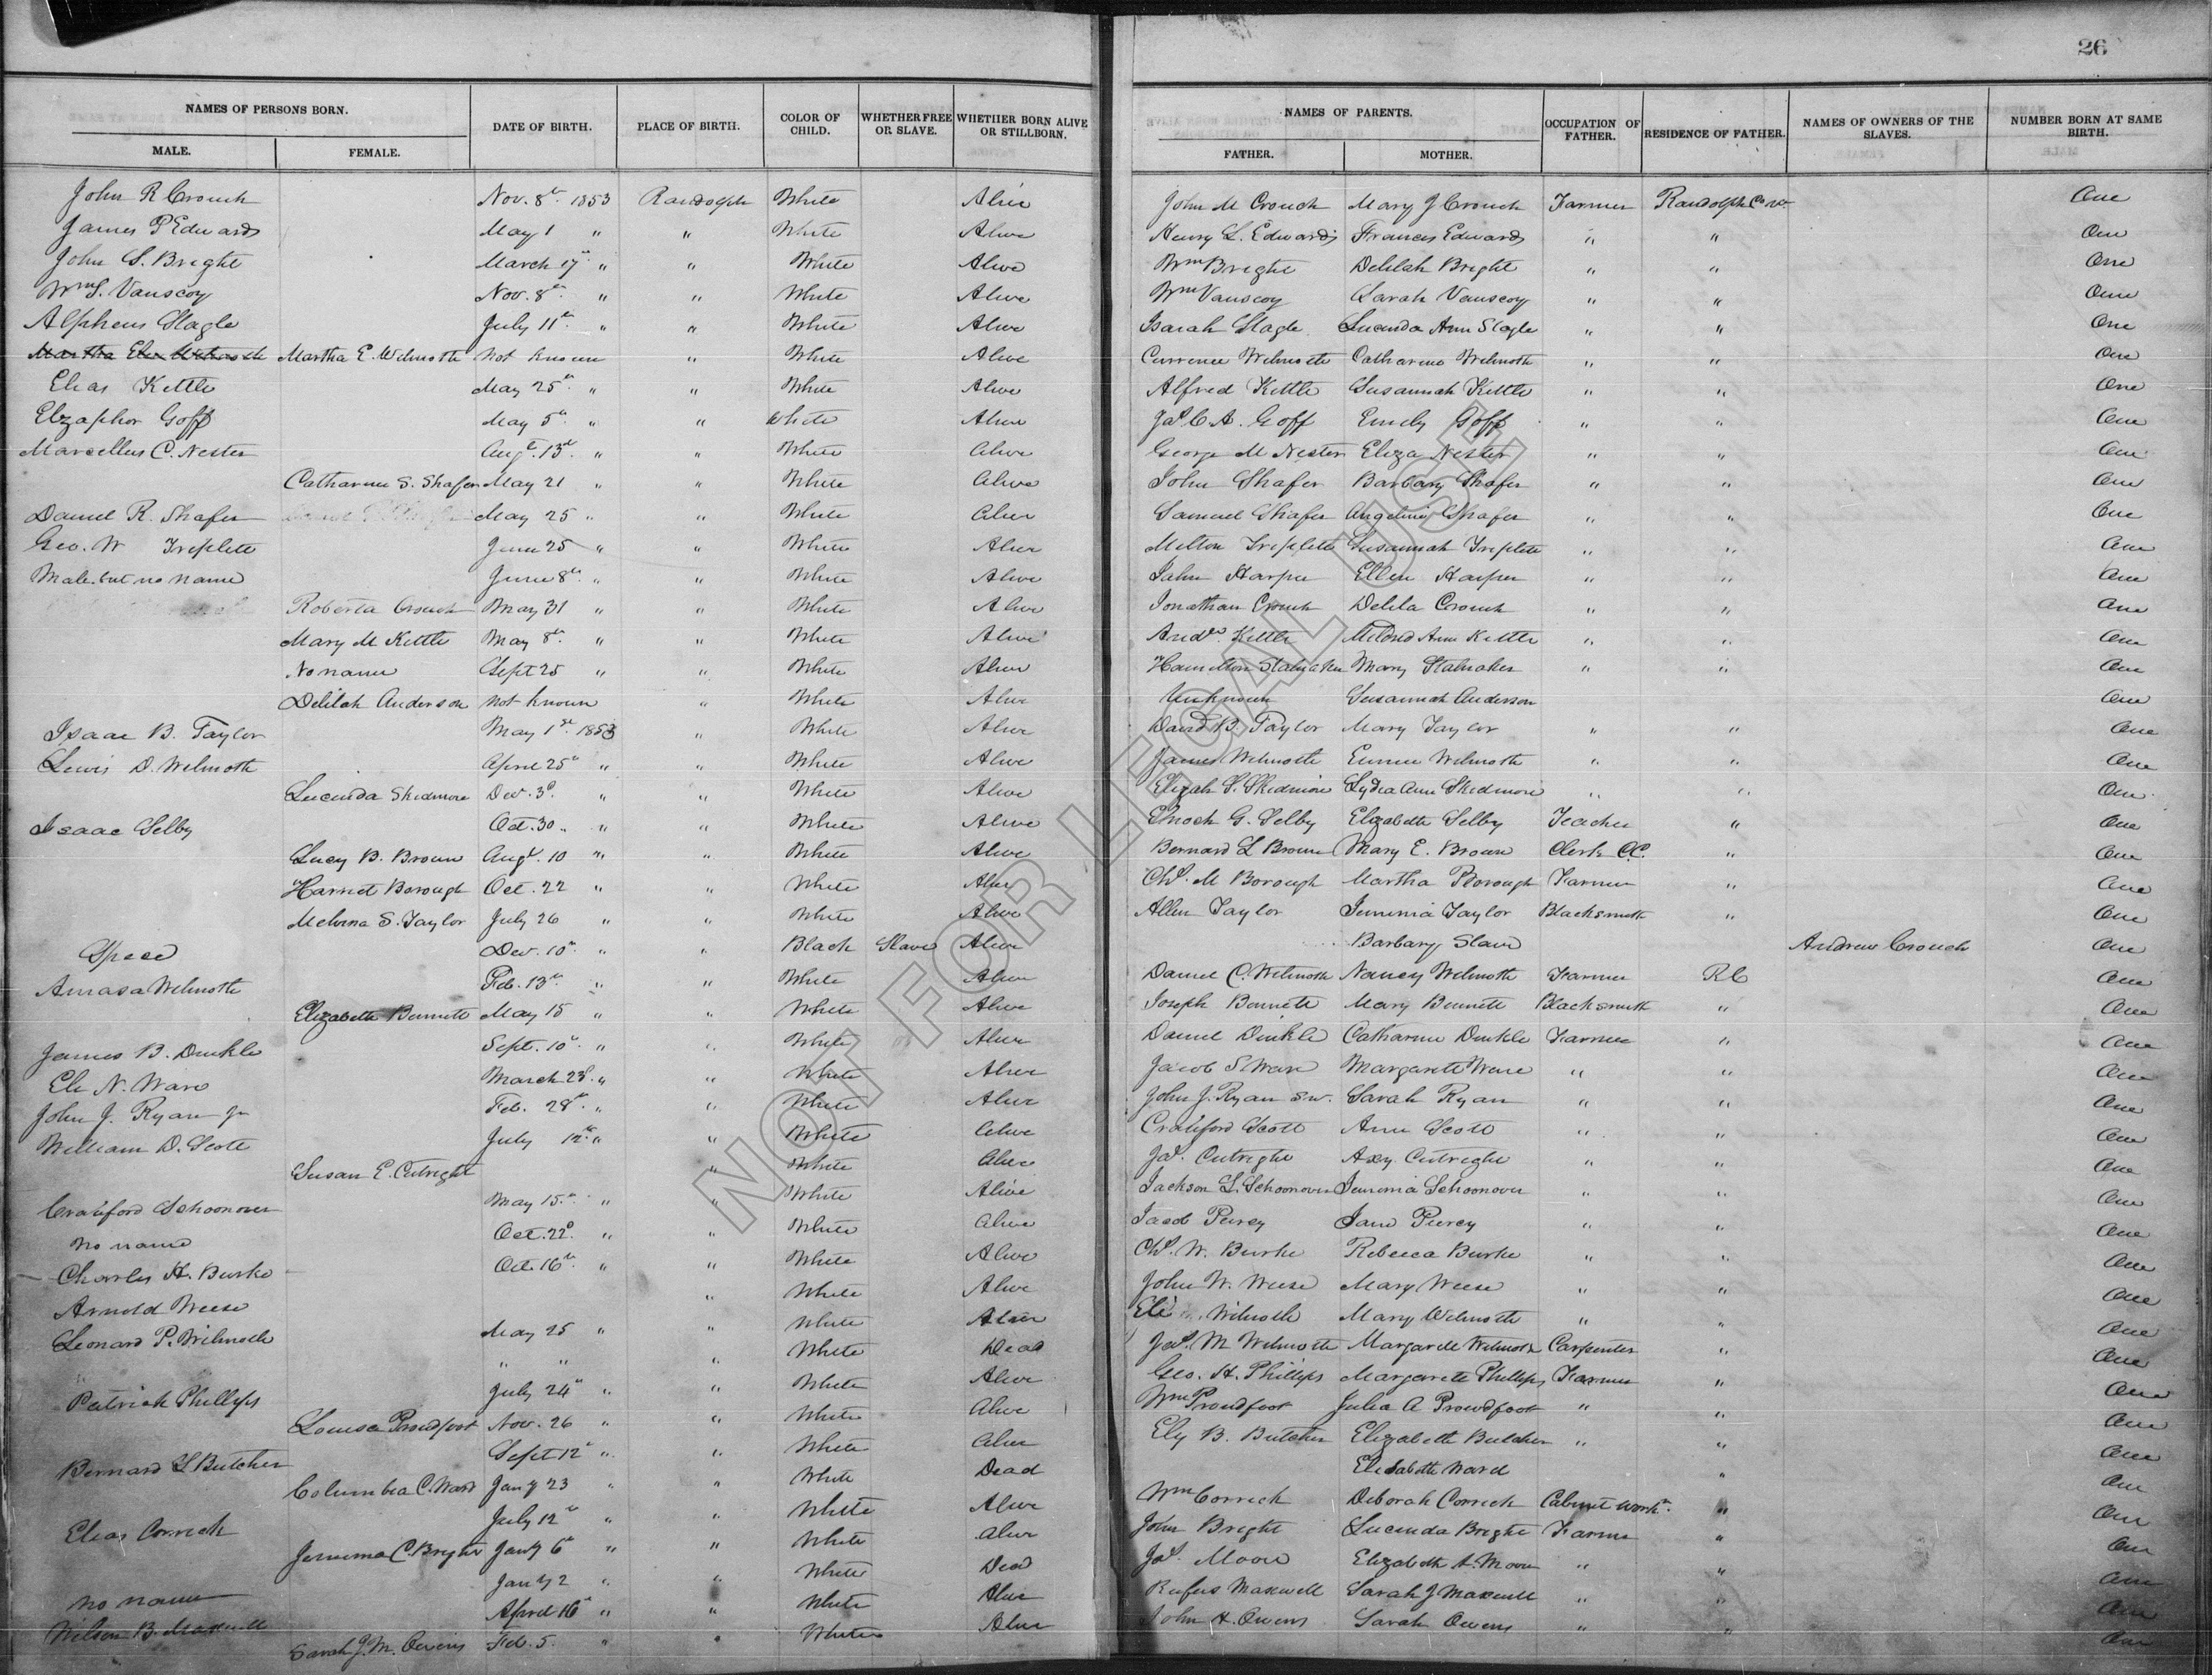 26
NAMES OF PERSONS BORN. DATE OF BIRTH. PLACE OF BIRTH. COLOR OF CHILD. WHETHER FREE OR SLAVE. WHETHER BORN ALIVE OR STILLBORN. NAMES OF PARENTS. OCCUPATION OF FATHER. RESIDENCE OF FATHER. NAMES OF OWNERS OF THE SLAVES. NUMBER BORN AT SAME BIRTH.
MALE. FEMALE. FATHER. MOTHER.
John R Crouch Nov. 8th 1853 Randolph White Alive John M Crouch Mary J Crouch Farmer Randolph Co Va One
James P Edwards May 1 " " White Alive Henry L. Edwards Frances Edwards " " One
John S. Bright March 17th " " White Alive Wm Bright Delilah Bright " " One
Wm S. Vanscoy Nov. 8th " " White Alive Wm Vanscoy Sarah Vanscoy " " One
Alpheus Slagle July 11th " " White Alive Isaiah Slagle Lucinda Ann Slagle " " One
Martha E. Wilmoth Not known " White Alive Currence Wilmoth Catharine Wilmoth " " One
Elias Kettle May 25th " " White Alive Alfred Kettle Susannah Kettle " " One
Elzaphor Goff May 5th " " White Alive Jas C. A. Goff Emily Goff " " One
Marcellus C. Nester Augt. 13th " " White Alive George M Nester Eliza Nester " " One
Catharine S. Shafer May 21 " " White Alive John Shafer Barbary Shafer " " One
Daniel R. Shafer May 25 " " White Alive Samuel Shafer Angelina Shafer " " One
Geo. W Triplett June 25 " " White Alive Milton Triplett Susannah Triplett " " One
Male but no name June 8th " " White Alive John Harper Ellen Harper " " One
Roberta Crouch May 31 " " White Alive Jonathan Crouch Delila Crouch " " One
Mary M Kettle May 8th " " White Alive Andw Kettle Mildred Ann Kettle " " One
No name Sept 25 " " White Alive Hamilton Stalnaker Mary Stalnaker " " One
Delilah Anderson Not known " White Alive Unknown Susannah Anderson One
Isaac B. Taylor May 1st 1853 " White Alive David B. Taylor Mary Taylor " " One
Lewis D. Wilmoth April 25th " " White Alive James Wilmoth Emma Wilmoth " " One
Lucinda Skidmore Dec. 3d " " White Alive Elijah S. Skidmore Lydia Ann Skidmore " " One
Isaac Selby Oct. 30 " " White Alive Enoch G. Selby Elizabeth Selby Teacher " One
Lucy B. Brown Augt. 10 " " White Alive Bernard L Brown Mary E. Brown Clerk C.C. " One
Harriet Borough Oct. 22 " " White Alive Chs. M Borough Martha Borough Farmer " One
Melvina S. Taylor July 26 " " White Alive Allen Taylor Jemima Taylor Blacksmith " One
Speed Dec. 10th " " Black Slave Alive Barbary Slave Andrew Crouch One
Amasa Wilmoth Feb. 13th " " White Alive Daniel C. Wilmoth Nancy Wilmoth Farmer R C One
Elizabeth Bennett May 15 " " White Alive Joseph Bennett Mary Bennett Blacksmith " One
James B. Dinkle Sept. 10th " " White Alive Daniel Dinkle Catharine Dinkle Farmer " One
Eli N. Ware March 23d " " White Alive Jacob S. Ware Margarett Ware " " One
John J. Ryan Jr Feb. 28th " " White Alive John J. Ryan Sr. Sarah Ryan " " One
William D. Scott July 12th " " White Alive Crawford Scott Ann Scott " " One
Susan E. Cutright " White Alive Jas. Cutright Axy Cutright " " One
Crawford Schoonover May 15th " " White Alive Jackson L. Schoonover Jemima Schoonover " " One
No name Oct. 22d " " White Alive Jacob Purcy Jane Purcy " " One
Charles H. Burke Oct. 16th " " White Alive Chs. W. Burke Rebecca Burke " " One
Arnold Weese " White Alive John W. Weese Mary Weese " " One
Leonard P. Wilmoth May 25 " " White Alive Eli Wilmoth Mary Wilmoth " " One
" " " White Dead Jas. M Wilmoth Margarett Wilmoth Carpenter " One
Patrick Phillips July 24th " " White Alive Geo. H. Phillips Margarett Phillips Farmer " One
Louisa Proudfoot Nov. 26 " " White Alive Wm Proudfoot Julia A Proudfoot " " One
Bernard L Butcher Sept 12th " " White Alive Ely B. Butcher Elizabeth Butcher " " One
Columbia C. Ward Jany 23 " " White Dead Elizabeth Ward " One
Elias Corrick July 12th " " White Alive Wm Corrick Deborah Corrick Cabinet workr. " One
Jemima C. Bright Jany 6th " " White Alive John Bright Lucinda Bright Farmer " One
No name Jany 2 " " White Dead Jas. Moore Elizabeth A. Moore " " One
Wilson B. Maxwell April 16th " " White Alive Rufus Maxwell Sarah J Maxwell " " One
Sarah J. M. Owens Feb. 5. " " White Alive John H. Owens Sarah Owens " " One
NOT FOR LEGAL USE